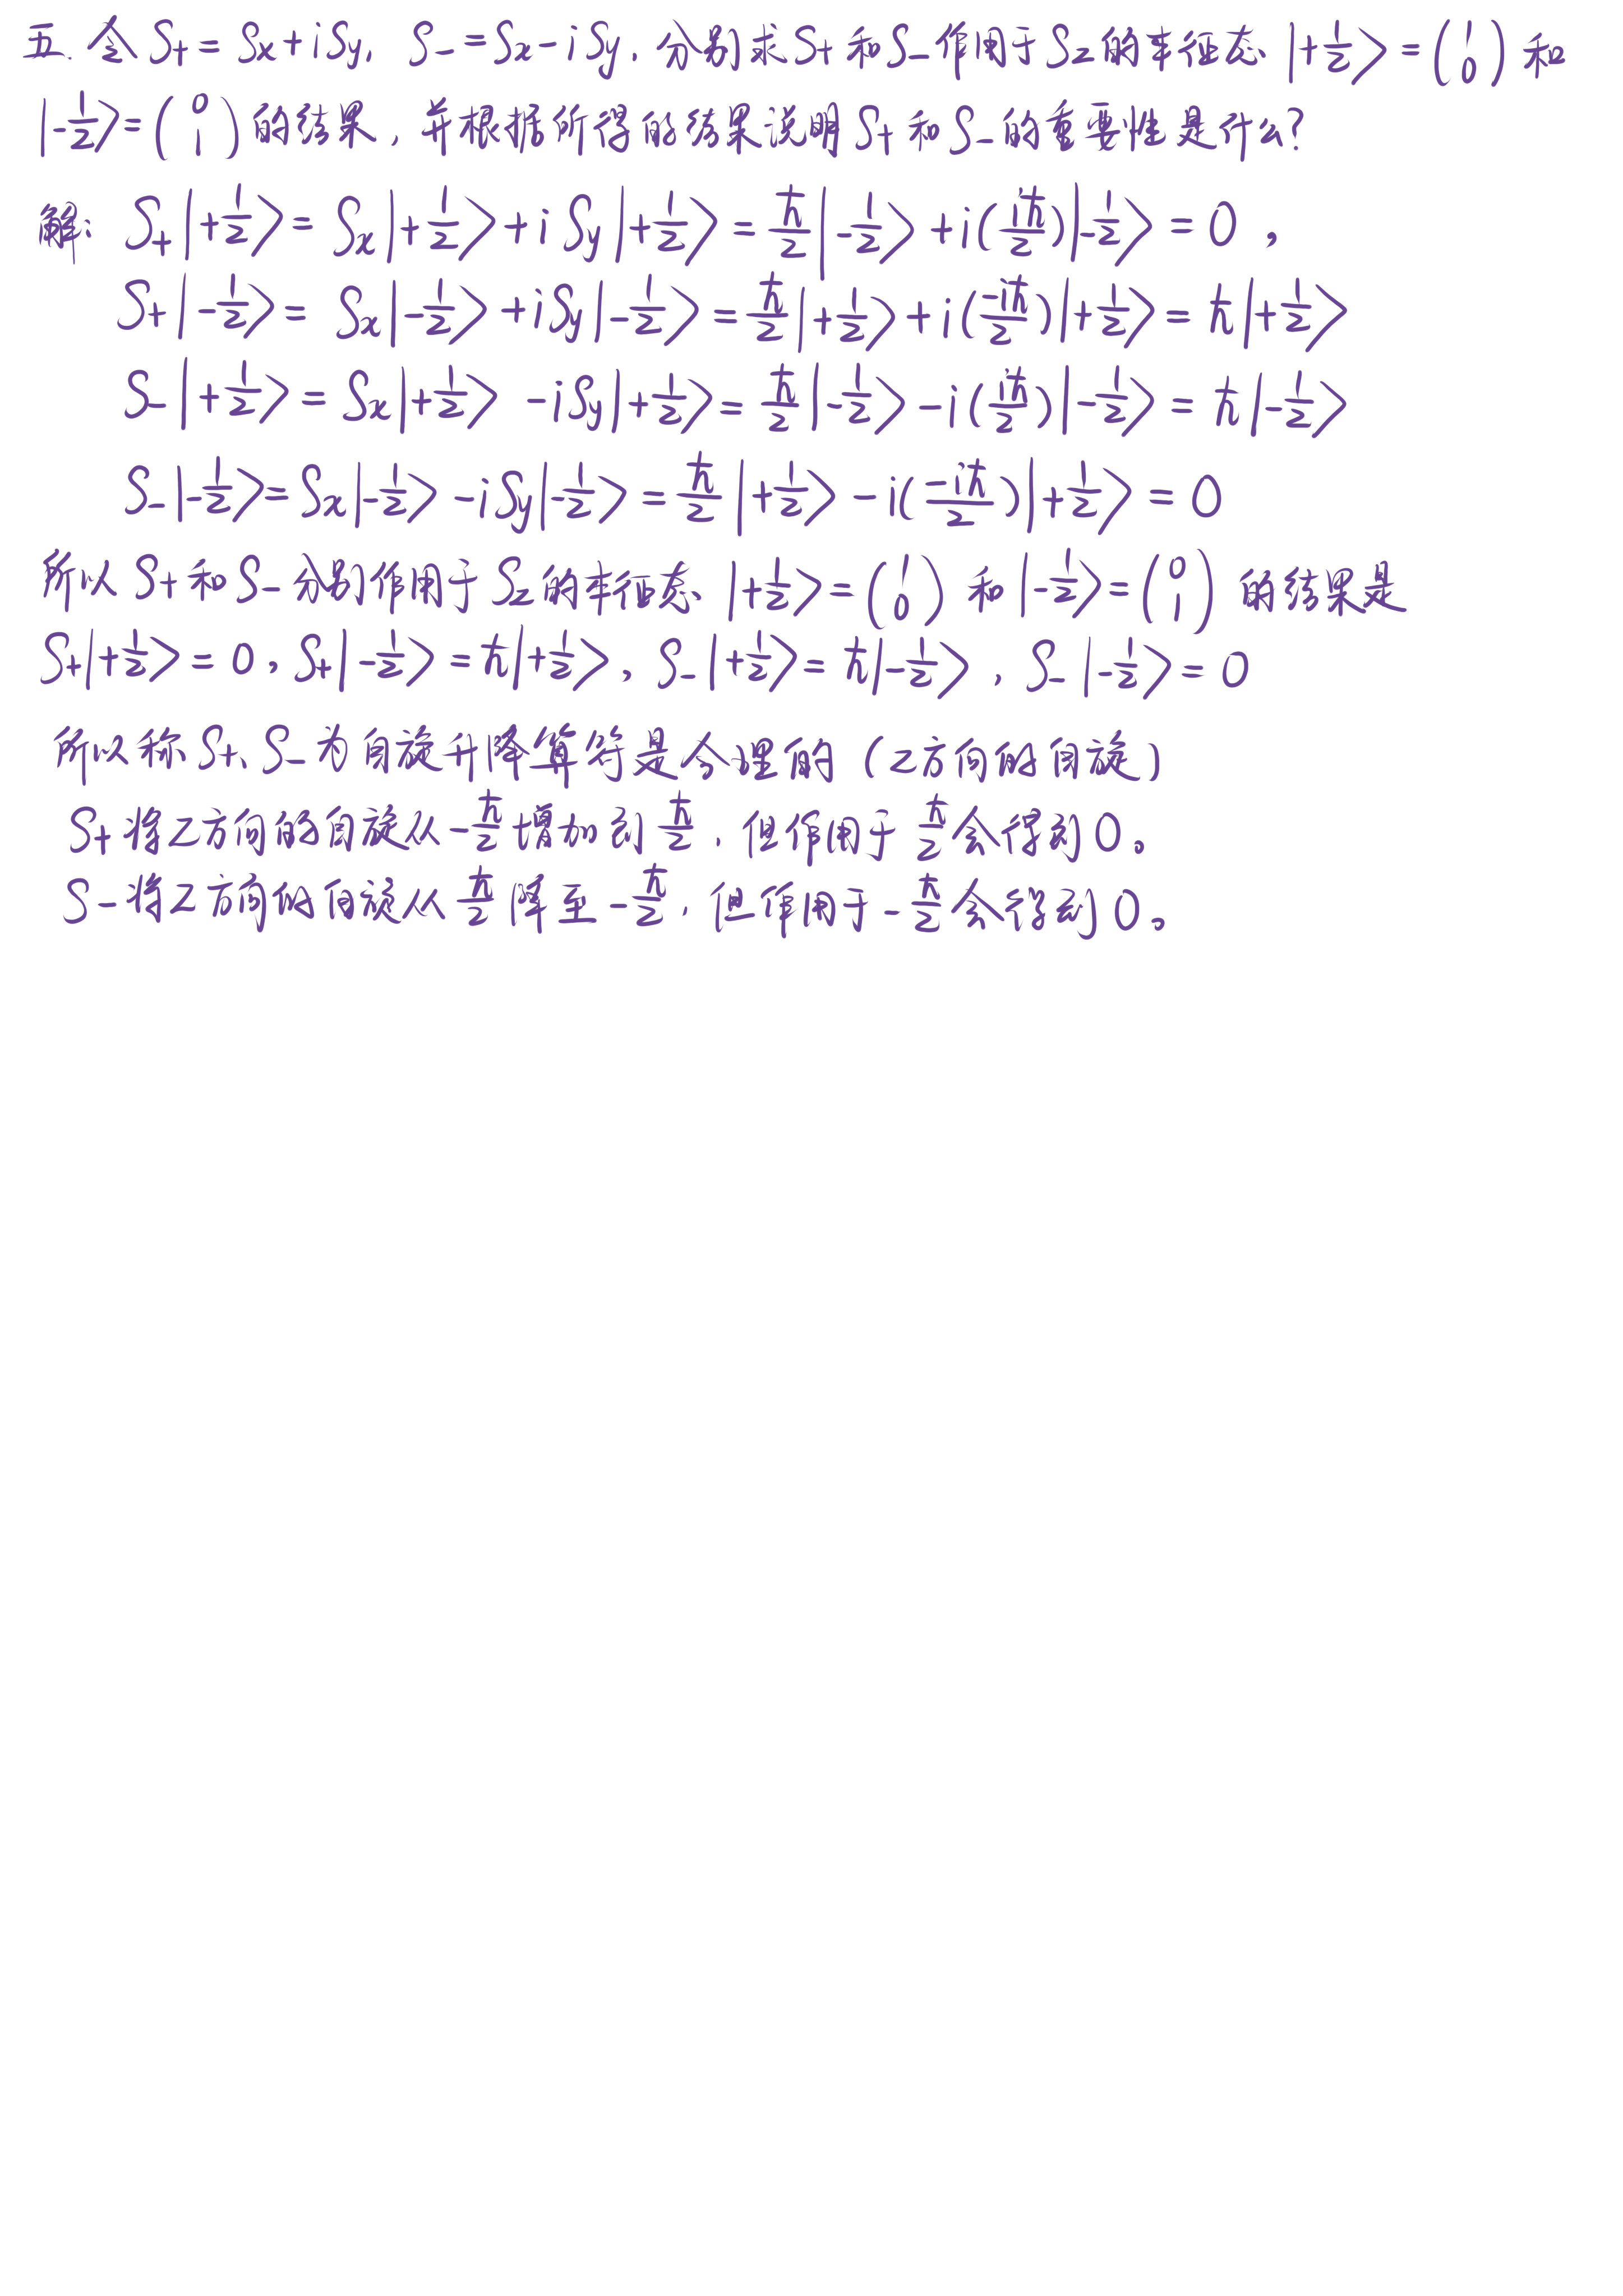 五. 令 S₊ = Sx + iSy, S₋ = Sx - iSy, 分别求S₊和S₋作用于Sz的本征态 |+1/2> = (1 0) 和
|-1/2> = (0 1) 的结果, 并根据所得的结果说明S₊和S₋的重要性是什么?
解: S₊|+1/2> = Sx|+1/2> + iSy|+1/2> = ħ/2|-1/2> + i(iħ/2)|-1/2> = 0 ,
S₊|-1/2> = Sx|-1/2> + iSy|-1/2> = ħ/2|+1/2> + i(-iħ/2)|+1/2> = ħ|+1/2>
S₋|+1/2> = Sx|+1/2> - iSy|+1/2> = ħ/2|-1/2> - i(iħ/2)|-1/2> = ħ|-1/2>
S₋|-1/2> = Sx|-1/2> - iSy|-1/2> = ħ/2|+1/2> - i(-iħ/2)|+1/2> = 0
所以 S₊和S₋分别作用于Sz的本征态 |+1/2> = (1 0) 和 |-1/2> = (0 1) 的结果是
S₊|+1/2> = 0, S₊|-1/2> = ħ|+1/2>, S₋|+1/2> = ħ|-1/2>, S₋|-1/2> = 0
所以称S₊、S₋为自旋升降算符是合理的(z方向的自旋)
S₊将z方向的自旋从-ħ/2增加到ħ/2, 但作用于ħ/2会得到0。
S₋将z方向的自旋从ħ/2降至-ħ/2, 但作用于-ħ/2会得到0。